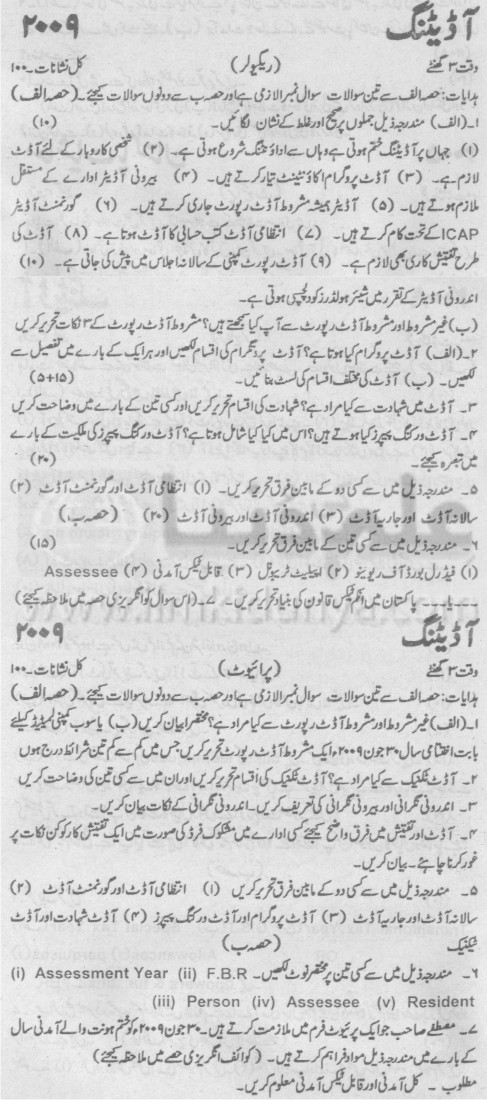 آڈیٹنگ ۲۰۰۹
وقت ۳ گھنٹے (ریگولر) کل نشانات۔۱۰۰
ہدایات: حصہ الف سے تین سوالات سوال نمبر الازمی ہے اور حصہ ب سے دونوں سوالات کیجئے۔ (حصہ الف)
۱۔ (الف) مندرجہ ذیل جملوں پر صحیح اور غلط کے نشان لگائیں۔ (۱۰)
(۱) جہاں پر آڈیٹنگ ختم ہوتی ہے وہاں سے اداؤنٹنگ شروع ہوتی ہے۔ (۲) شخصی کاروبار کے لئے آڈٹ
لازم ہے۔ (۳) آڈٹ پروگرام اکاؤنٹینٹ تیار کرتے ہیں۔ (۴) بیرونی آڈیٹر ادارے کے مستقل
ملازم ہوتے ہیں۔ (۵) آڈیٹر ہمیشہ مشروط آڈٹ رپورٹ جاری کرتے ہیں۔ (۶) گورنمنٹ آڈیٹر
ICAP کے تحت کام کرتے ہیں۔ (۷) انتظامی آڈٹ کتب حسابی کا آڈٹ ہوتا ہے۔ (۸) آڈٹ کی
طرح تفتیش کاری بھی لازم ہے۔ (۹) آڈٹ رپورٹ کمپنی کے سالانہ اجلاس میں پیش کی جاتی ہے۔ (۱۰)
اندرونی آڈیٹر کے تقرر میں شیئر ہولڈرز کو دلچسپی ہوتی ہے۔
(ب) غیر مشروط اور مشروط آڈٹ رپورٹ سے آپ کیا سمجھتے ہیں؟ مشروط آڈٹ رپورٹ کے ۳ نکات تحریر کریں
۲۔ (الف) آڈٹ پروگرام کیا ہوتا ہے؟ آڈٹ پروگرام کی اقسام لکھیں اور ہر ایک کے بارے میں تفصیل سے
لکھیں۔ (ب) آڈٹ کی مختلف اقسام کی لسٹ بنائیں۔ (۱۵+۵)
۳۔ آڈٹ میں شہادت سے کیا مراد ہے؟ شہادت کی اقسام تحریر کریں اور کسی تین کے بارے میں وضاحت کریں
۴۔ آڈٹ ورکنگ پیپرز کیا ہوتے ہیں؟ اس میں کیا کیا شامل ہوتا ہے؟ آڈٹ ورکنگ پیپرز کی ملکیت کے بارے
میں تبصرہ کیجئے۔ (۲۰)
۵۔ مندرجہ ذیل میں سے کسی دو کے مابین فرق تحریر کریں۔ (۱) انتظامی آڈٹ اور گورنمنٹ آڈٹ (۲)
سالانہ آڈٹ اور جاریہ آڈٹ (۳) اندرونی آڈٹ اور بیرونی آڈٹ (۲۰) (حصہ ب)
۶۔ مندرجہ ذیل میں سے کسی تین کے مابین فرق تحریر کریں۔ (۱۵)
(۱) فیڈرل بورڈ آف ریونیو (۲) اپیلیٹ ٹریبونل (۳) قابل ٹیکس آمدنی (۴) Assessee
۔۔یا۔۔ پاکستان میں انکم ٹیکس قانون کی بنیاد تحریر کریں۔ ۷۔ (اس سوال کو انگریزی حصہ میں ملاحظہ کیجئے)
آڈیٹنگ ۲۰۰۹
وقت ۳ گھنٹے (پرائیوٹ) کل نشانات۔۱۰۰
ہدایات: حصہ الف سے تین سوالات سوال نمبر الازمی ہے اور حصہ ب سے دونوں سوالات کیجئے۔ (حصہ الف)
۱۔ (الف) غیر مشروط اور مشروط آڈٹ رپورٹ سے کیا مراد ہے؟ مختصراً بیان کریں (ب) یا سوب کمپنی لمیٹیڈ کیلئے
بابت اختتامی سال ۳۰ جون ۲۰۰۹ء ایک مشروط آڈٹ رپورٹ تحریر کریں جس میں کم سے کم تین شرائط درج ہوں
۲۔ آڈٹ ٹکنیک سے کیا مراد ہے؟ آڈٹ ٹکنیک کی اقسام تحریر کریں اور ان میں سے کسی تین کی وضاحت کریں
۳۔ اندرونی نگرانی اور بیرونی نگرانی کی تعریف کریں۔ اندرونی نگرانی کے نکات بیان کریں۔
۴۔ آڈٹ اور تفتیش میں فرق واضح کیجئے کسی ادارے میں مشکوک فرڈ کی صورت میں ایک تفتیش کار کو کن نکات پر
غور کرنا چاہئے۔ بیان کریں۔
۵۔ مندرجہ ذیل میں سے کسی دو کے مابین فرق تحریر کریں (۱) انتظامی آڈٹ اور گورنمنٹ آڈٹ (۲)
سالانہ آڈٹ اور جاریہ آڈٹ (۳) آڈٹ پروگرام اور آڈٹ ورکنگ پیپرز (۴) آڈٹ شہادت اور آڈٹ
ٹیکنیک (حصہ ب)
۶۔ مندرجہ ذیل میں سے کسی تین پر مختصر نوٹ لکھیں۔ (i) Assessment Year (ii) F.B.R
(iii) Person (iv) Assessee (v) Resident
۷۔ مصطفٰے صاحب جو ایک پرائیوٹ فرم میں ملازمت کرتے ہیں۔ ۳۰ جون ۲۰۰۹ء کو ختم ہونے والے آمدنی سال
کے بارے میں مندرجہ ذیل مواد فراہم کرتے ہیں۔ (کوائف انگریزی حصے میں ملاحظہ کیجئے)
مطلوب ۔ کل آمدنی اور قابل ٹیکس آمدنی معلوم کریں۔